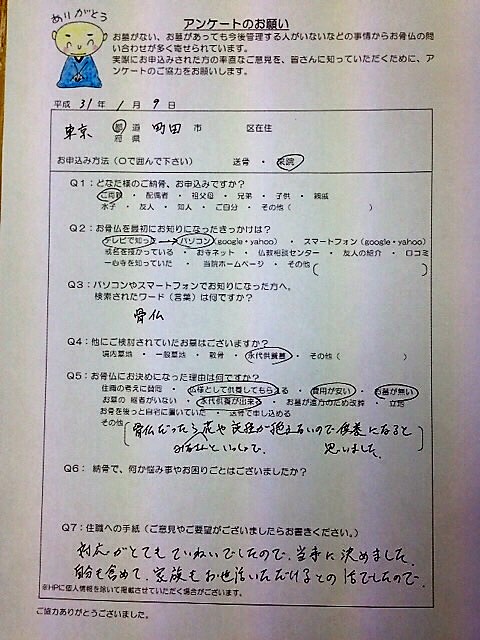 ありがとう
アンケートのお願い
お墓がない、お墓があっても今後管理する人がいないなどの事情からお骨仏の問
い合わせが多く寄せられています。
実際にお申込みされた方の率直なご意見を、皆さんに知っていただくために、ア
ンケートのご協力をお願いします。
平成 31 年 1 月 9 日
東京 都 道 町田 市 区在住
府 県
お申込み方法（○で囲んで下さい） 送骨 ・ 来院
Q1：どなた様のご納骨、お申込みですか？
ご両親 ・ 配偶者 ・ 祖父母 ・ 兄弟 ・ 子供 ・ 親戚
水子 ・ 友人 ・ 知人 ・ ご自分 ・ その他（ ）
Q2：お骨仏を最初にお知りになったきっかけは？
テレビで知った → パソコン（google・yahoo） ・ スマートフォン（google・yahoo）
戒名を授かっている ・ お寺ネット ・ 仏教相談センター ・ 友人の紹介 ・ 口コミ
一心寺を知っていた ・ 当院ホームページ ・ その他（ ）
Q3：パソコンやスマートフォンでお知りになった方へ。
検索されたワード（言葉）は何ですか？
骨仏
Q4：他にご検討されていたお墓はございますか？
境内墓地 ・ 一般墓地 ・ 散骨 ・ 永代供養墓 ・ その他（ ）
Q5：お骨仏にお決めになった理由は何ですか？
住職の考えに賛同 ・ 仏様として供養してもらえる ・ 費用が安い ・ お墓が無い
お墓の継者がいない ・ 永代供養が出来る ・ お墓が遠方のため改葬 ・ 立地
お骨を後っと自宅に置いていた ・ 送骨で申し込める
その他 骨仏だったら 供養になると
いっしょで、 思いました。
Q6： 納骨で、何か悩み事やお困りごとはございましたか？
Q7：住職への手紙（ご意見やご要望がございましたらお書きください。）
対応がとてもていねいでしたので、当寺に決めました。
自分も含めて、家族もお世話いただけるとの話でしたので。
※HPに個人情報を除いて掲載させていただく場合がございます。
ご協力ありがとうございました。